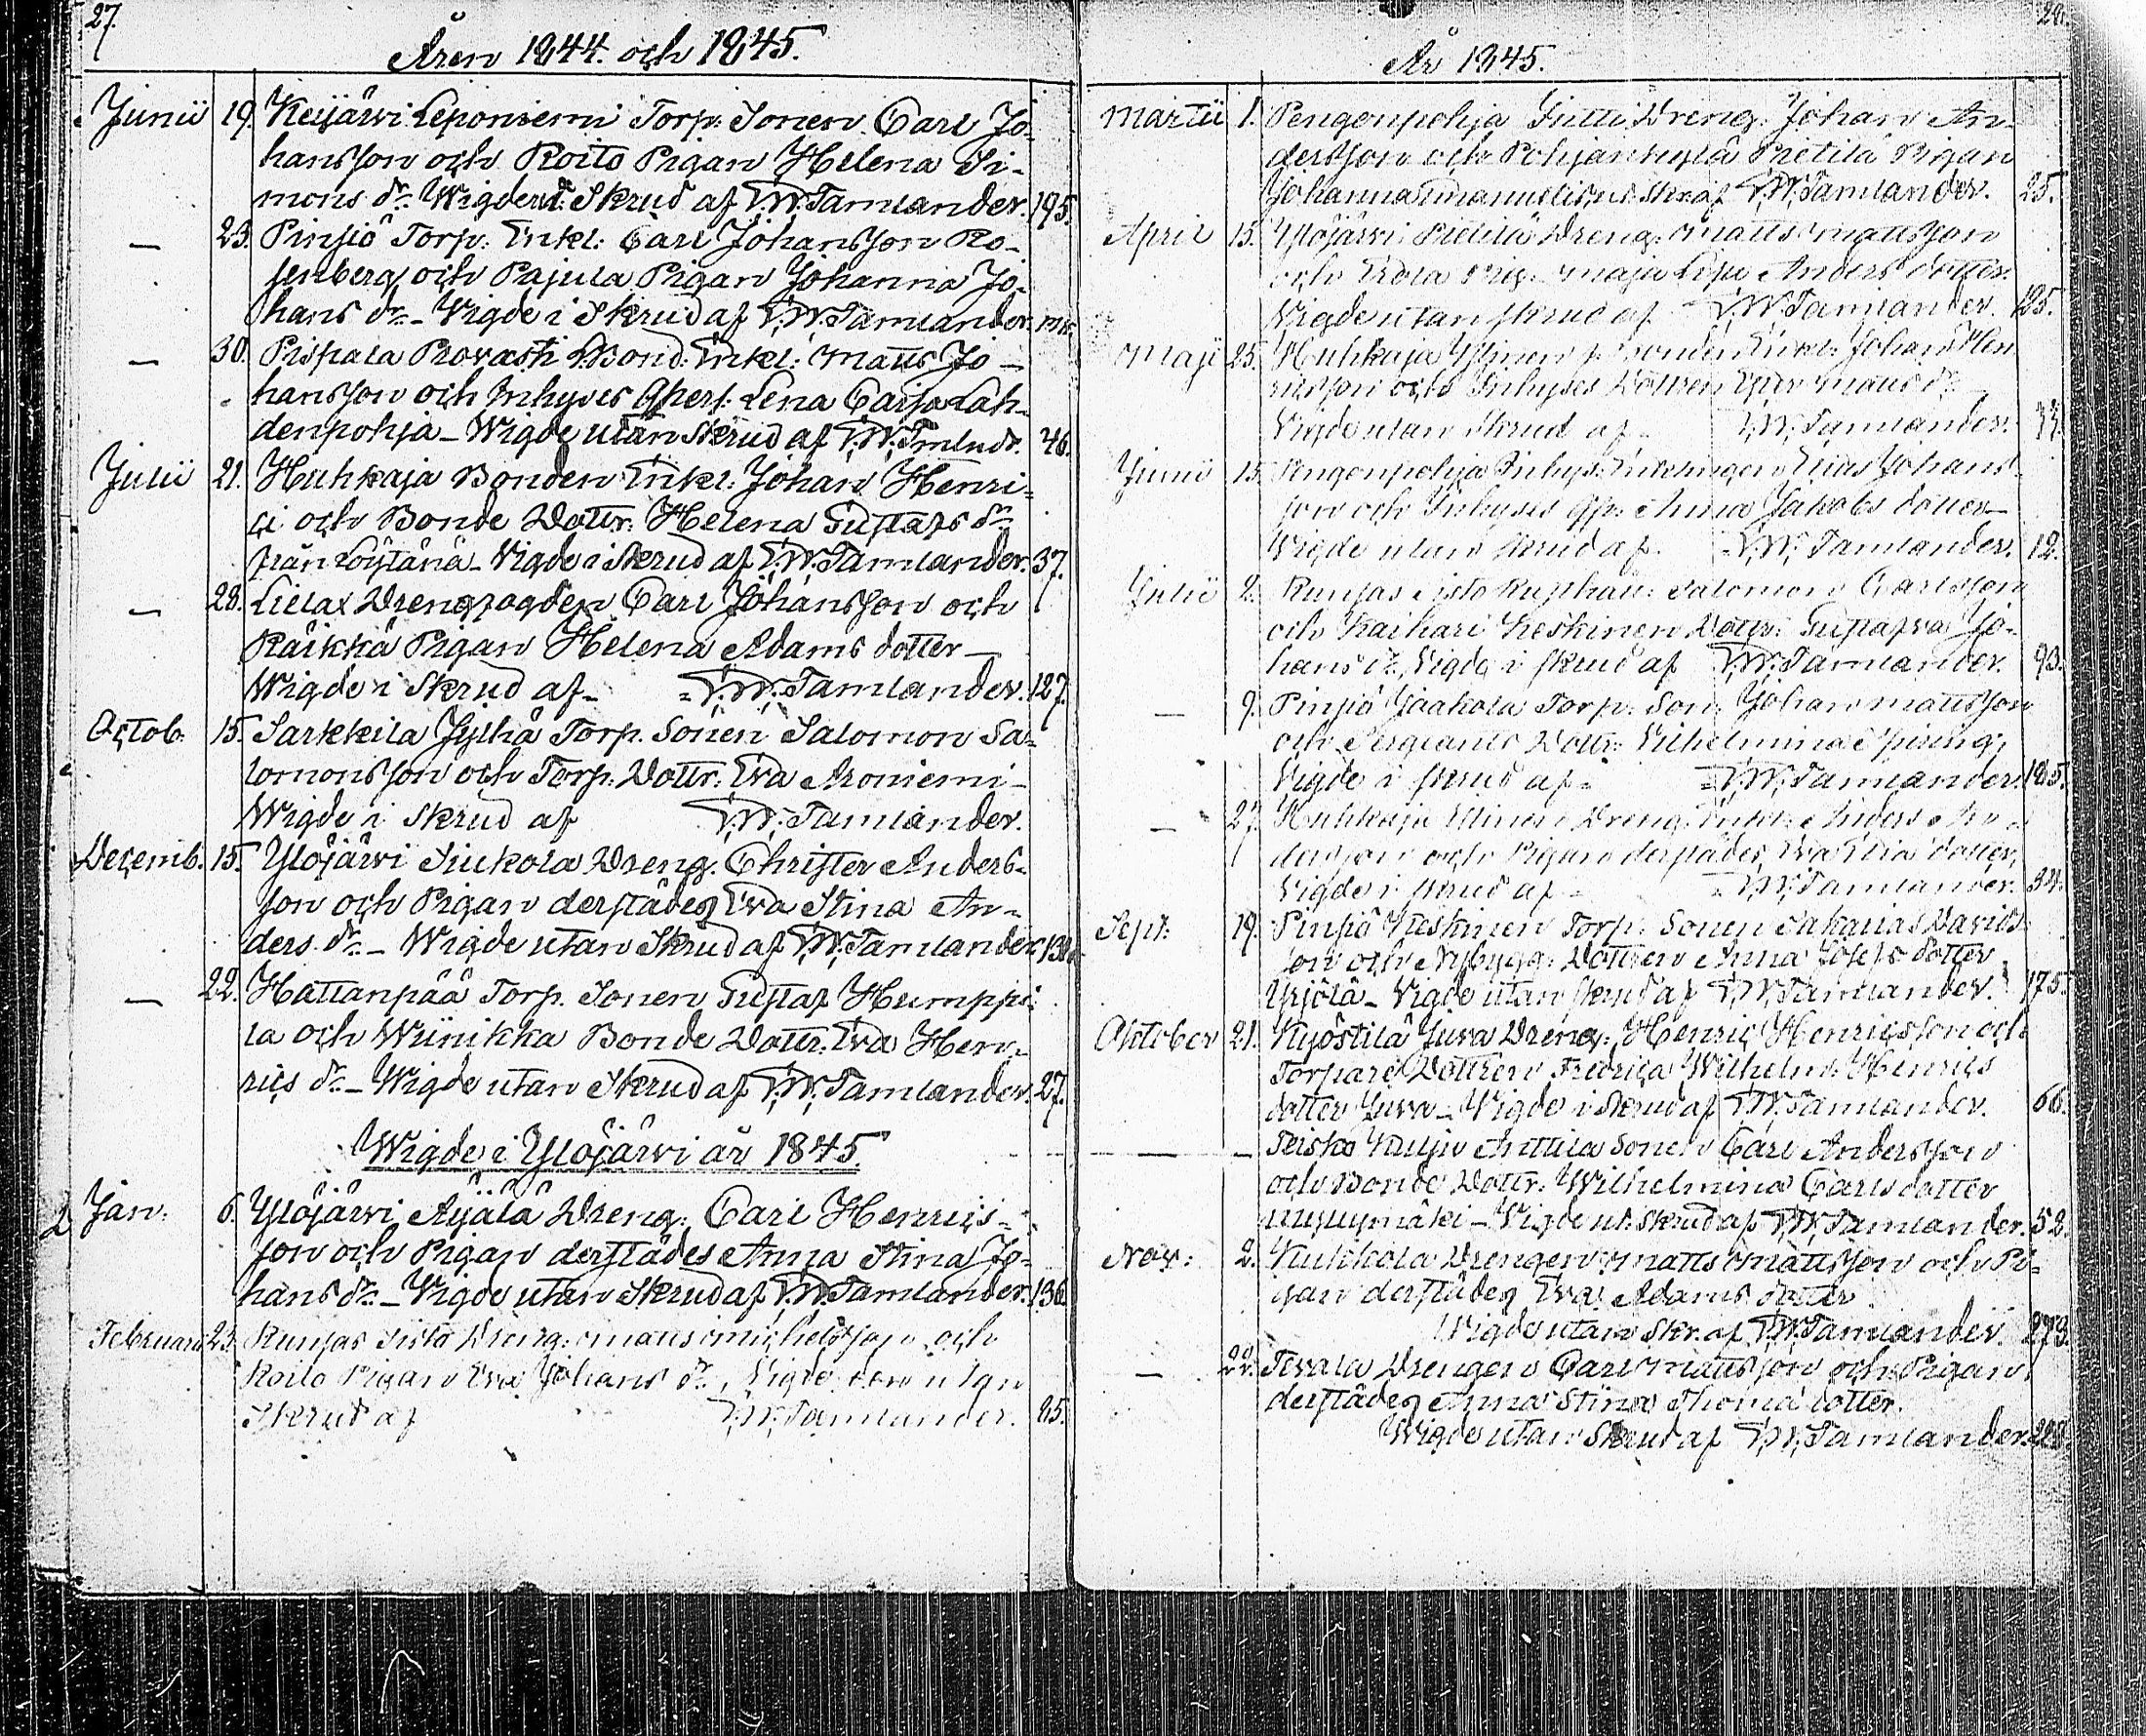 27.
Åren 1844. och 1845.
Junii 19. Keijärwi Leponiemi Torp: Sonen Carl Jo-
hansson och Roito Pigan Helena Si-
mons dr. Wigde Skrud af T.W. Tamlander. 195.
— 23. Pinsiö Torp: Enkl: Carl Johansson Ro-
senberg och Pajula Pigan Johanna Jo-
hans dr. – Wigde i Skrud af T.W. Tamlander.
— 30. Pispala Provasti Bond: Enkl: Matts Jo-
hansson och Inhyses Lena Caisa Lah-
denpohja – Wigde utan Skrud af T.W. Tmlndr. 46.
Julii 21. Huhkaja Bonden Enkl: Johan Henri-
ci och Bonde Dottr: Helena Gustafs dr
från Löytänä – Vigde i Skrud af T.W. Tamlander. 37.
— 28. Lielax Drengfogden Carl Johansson och
Räikkä Pigan Helena Adams dotter –
Wigde i Skrud af – T.W. Tamlander. 127.
Octob. 15. Sarkkila Jylhä Torp. Sonen Salomon Sa-
lomonsson och Torp. Dottr: Eva Aroniemi –
Wigde i Skrud af T.W. Tamlander.
Decemb. 15. Ylöjärwi Siukola Dreng. Christer Anders-
son och Pigan derstädes Eva Stina An-
ders dr. – Wigde utan Skrud af T.W. Tamlander.
— 22. Hattanpää Torp. Sonen Gustaf Humppi-
la och Wiinikka Bonde Dottr: Eva Hen-
rics dr. – Wigde utan Skrud af T.W. Tamlander. 27.
Wigde i Ylöjärwi år 1845
Jan: 6. Ylöjärwi Äijälä Dreng. Carl Henrics-
son och Pigan derstädes Anna Stina Jo-
hans dr. – Vigde utan Skrud af T.W. Tamlander. 136.
Februarii 23. Runsas Sisto Dreng: Matts Michelsson och
Roito Pigan Eva Johans dr, Vigde utan
Skrud af T.W. Tamlander. 85.
28.
År 1845.
Martii 1. Pengonpohja Dreng: Johan An-
dersson och Pohjankylä Pietilä Pigan
Johanna Emanuels Skr. af T.W. Tamlander. 25.
April 15. Ylöjärwi Pietilä Dreng: Matts Mattsson
och Pig. Maja Lisa Anders dotter.
Vigde utan skrud af T.W. Tamlander. 125.
Maji 25. Huhkaja Ylinen Bonden Enkl: Johan Hen-
ricsson och Inhyses Dottren Matts dr
Vigde utan Skrud af – T.W. Tamlander.
Junii 15. Pengonpohja Inhys: Enklingen Elias Johans-
son och Inhyses Anna Jakobs dotter –
Wigde utan Skrud af T.W. Tamlander. 12.
Julii 2. Runsas Sisto Salomon Carlsson
och Kaihari Keskinen Dottr: Gustafva Jo-
hans dr. Vigde i skrud af T.W. Tamlander. 93.
— 9. Pinsiö Jaakola Torp: Son: Johan Mattsson
och Sergeants Dottr: Vilhelmina Spring,
Vigde i skrud af – T.W. Tamlander. 185.
— 27. Huhkaja Ylinen Dreng: Enkl: Anders An-
dersson och Pigan derstädes Eva Stina dotter,
Vigde i skrud af – T.W. Tamlander. 34.
Sept: 19. Pinsiö Keskinen Torp: Sonen Sakarias Davids-
son och Nybygg: Dottren Anna Josefs dotter
Yrjölä – Vigde utan skrud af T.W. Tamlander. 175.
October 21. Kyöstilä Juva Dreng: Henric Henricsson och
Torpare Dottren Fredrica Wilhelm: Henrics
dotter Juva – Wigde i Skrud af T.W. Tamlander. 66.
— — Teisko Anttila Sonen Carl Andersson
och Bonde Dottr: Wilhelmina Carls dotter
– Vigde ut. skrud af T.W. Tamlander. 52.
Nov: 2. Kukkola Drengen Matts Mattsson och Pi-
gan derstädes Eva Adams dotter
Vigde utan Skr. af T.W. Tamlander. 273.
— 22. Tevala Drengen Carl Mattsson och Pigan
derstädes Anna Stina Thoma dotter.
Wigde utan Skrud af T.W. Tamlander. 228.